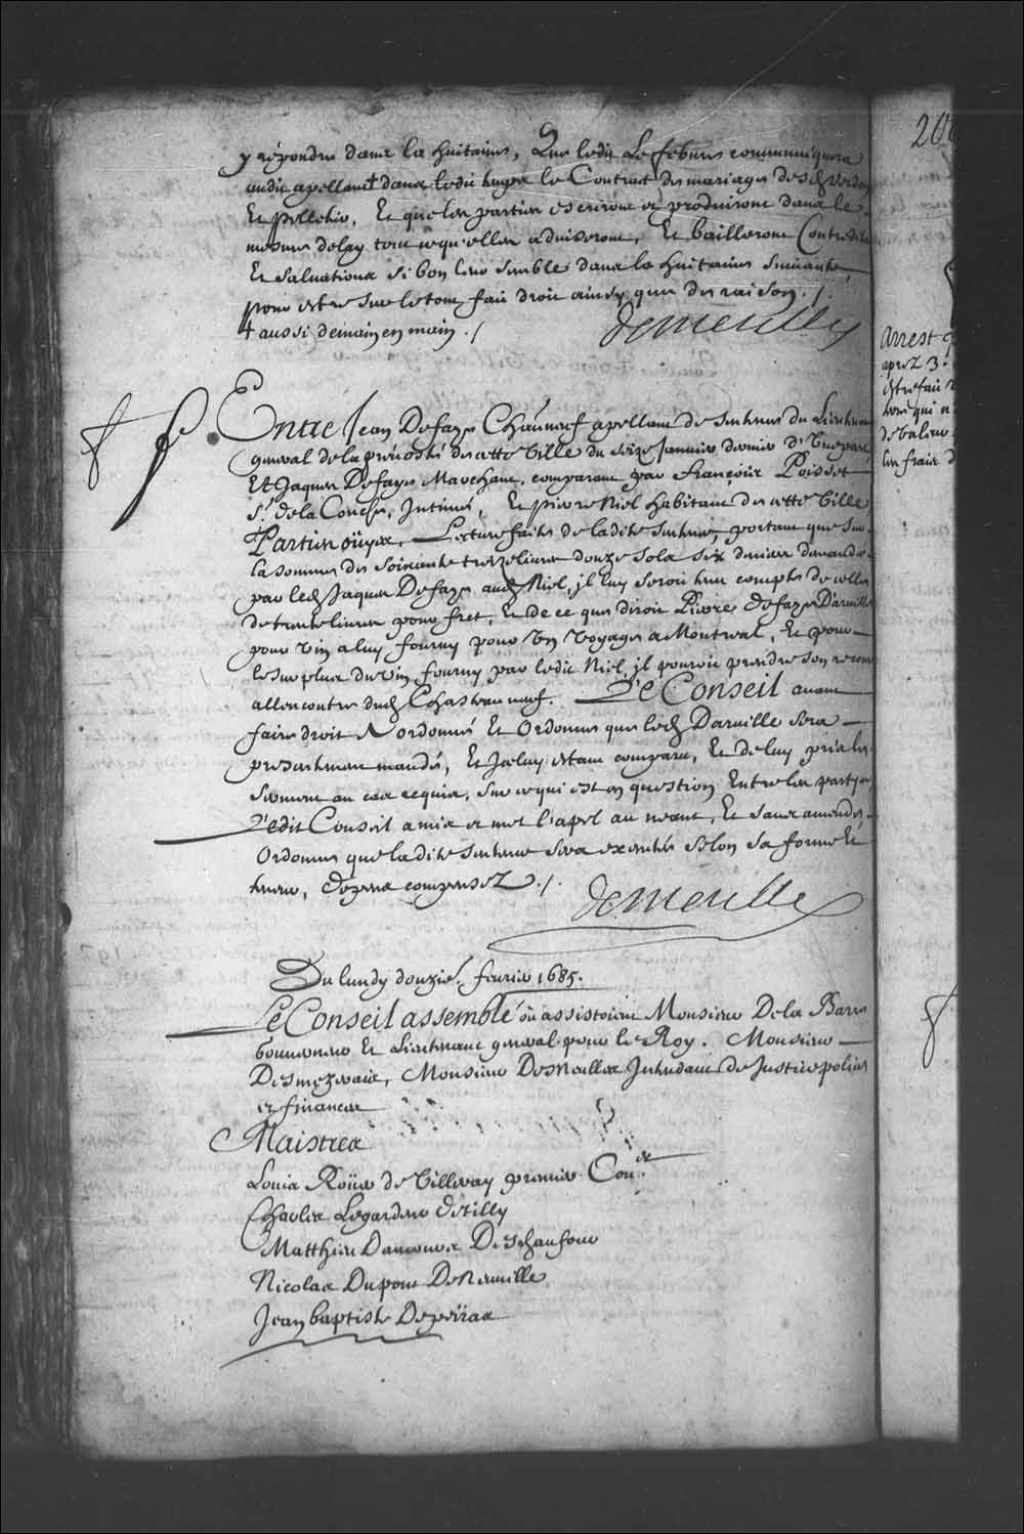 y répondre dans la huitaine, Que ledit Lefebure communiquera
audit apellant ⸸ dans ledit temps le Contract de mariage desd.
Et pelletier, Et que les parties escriront et produiront dans le
mesme delay tout ce qu'elles aduiseront, Et bailleront Contredits
Et saluations si bon leur semble dans la huitaine suiuante,
pour estre sur le tout fait droit ainsy que de raison ./.
⸸ aussi de main en main ./
demeulle
Entre Jean Defaye Chaũneuf apellant de sentence du Lieutenant
general de la préuosté de cette Ville du seize Januier dernier d'Une part,
Et Jaques Defaye Marchant, comparant par François Poisset
Sr. de la Conche, Intimé, Et pierre Niel habitant de cette Ville
Parties oüyes, Lecture faite de ladite sentence, portant que sur
la somme de soixante treize liures douze sols six deniers demandée
par led. Jaques Defaye aud. Niel, il luy seroit tenu compte de celle
de trente liures pour fret, Et de ce que diroit Pierre defaye Daruille
pour Vin a luy fourny pour Un Voyage a Montreal, Et pour
le surplus du Vin fourny par ledit Niel, il pouroit prendre son recours
allencontre dud. Chasteauneuf. Le Conseil auant
faire droit A ordonné Et Ordonne que led. Daruille sera
presentement mandé, Et Iceluy estant comparu, Et de luy pris le
serment au cas requis, sur ce qui est en question Entre les parties
Ledit Conseil a mis et met l'apel au neant, Et sans amende,
Ordonne que ladite sentence sera executée selon sa forme Et
teneur, despens compensez ./.
demeulle
Du lundy douzie. feurier 1685.
Le Conseil assemblé où assistoient Monsieur De la Barre
Gouuerneur Et Lieutenant general pour le Roy. Monsieur
Desmezerais, Monsieur Demeulles Intendant de Justice police
et finances
Maistres
Louis Roüer de Villeray premier Con.er
Charles Legardeur de Tilly
Matthieu Damours Deschaufour
Nicolas Dupont De Neuuille
Jean baptiste Depeiras
20
Arrest q
aprez 3.
estre fait
hors qui n
de Valeur
les frais d